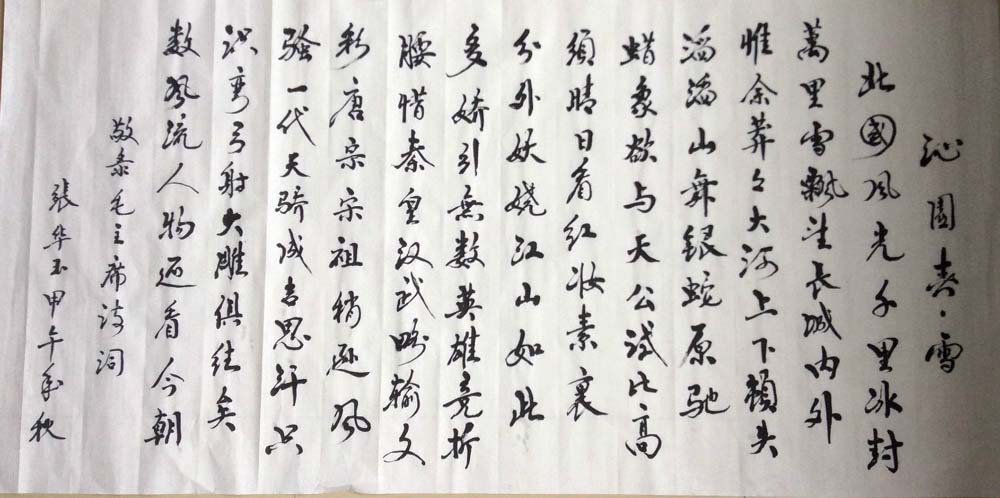 沁園春·雪
北國风光千里冰封
萬里雪飘望长城内外
惟余莽々大河上下頓失
滔滔山舞银蛇原驰
蜡象欲与天公试比高
须晴日看红妆素裹
分外妖娆江山如此
多娇引無数英雄竞折
腰惜秦皇汉武略输文
彩唐宗宋祖稍逊风
骚一代天骄成吉思汗只
识弯弓射大雕俱往矣
数风流人物还看今朝
敬录毛主席诗词
張华玉甲午年秋